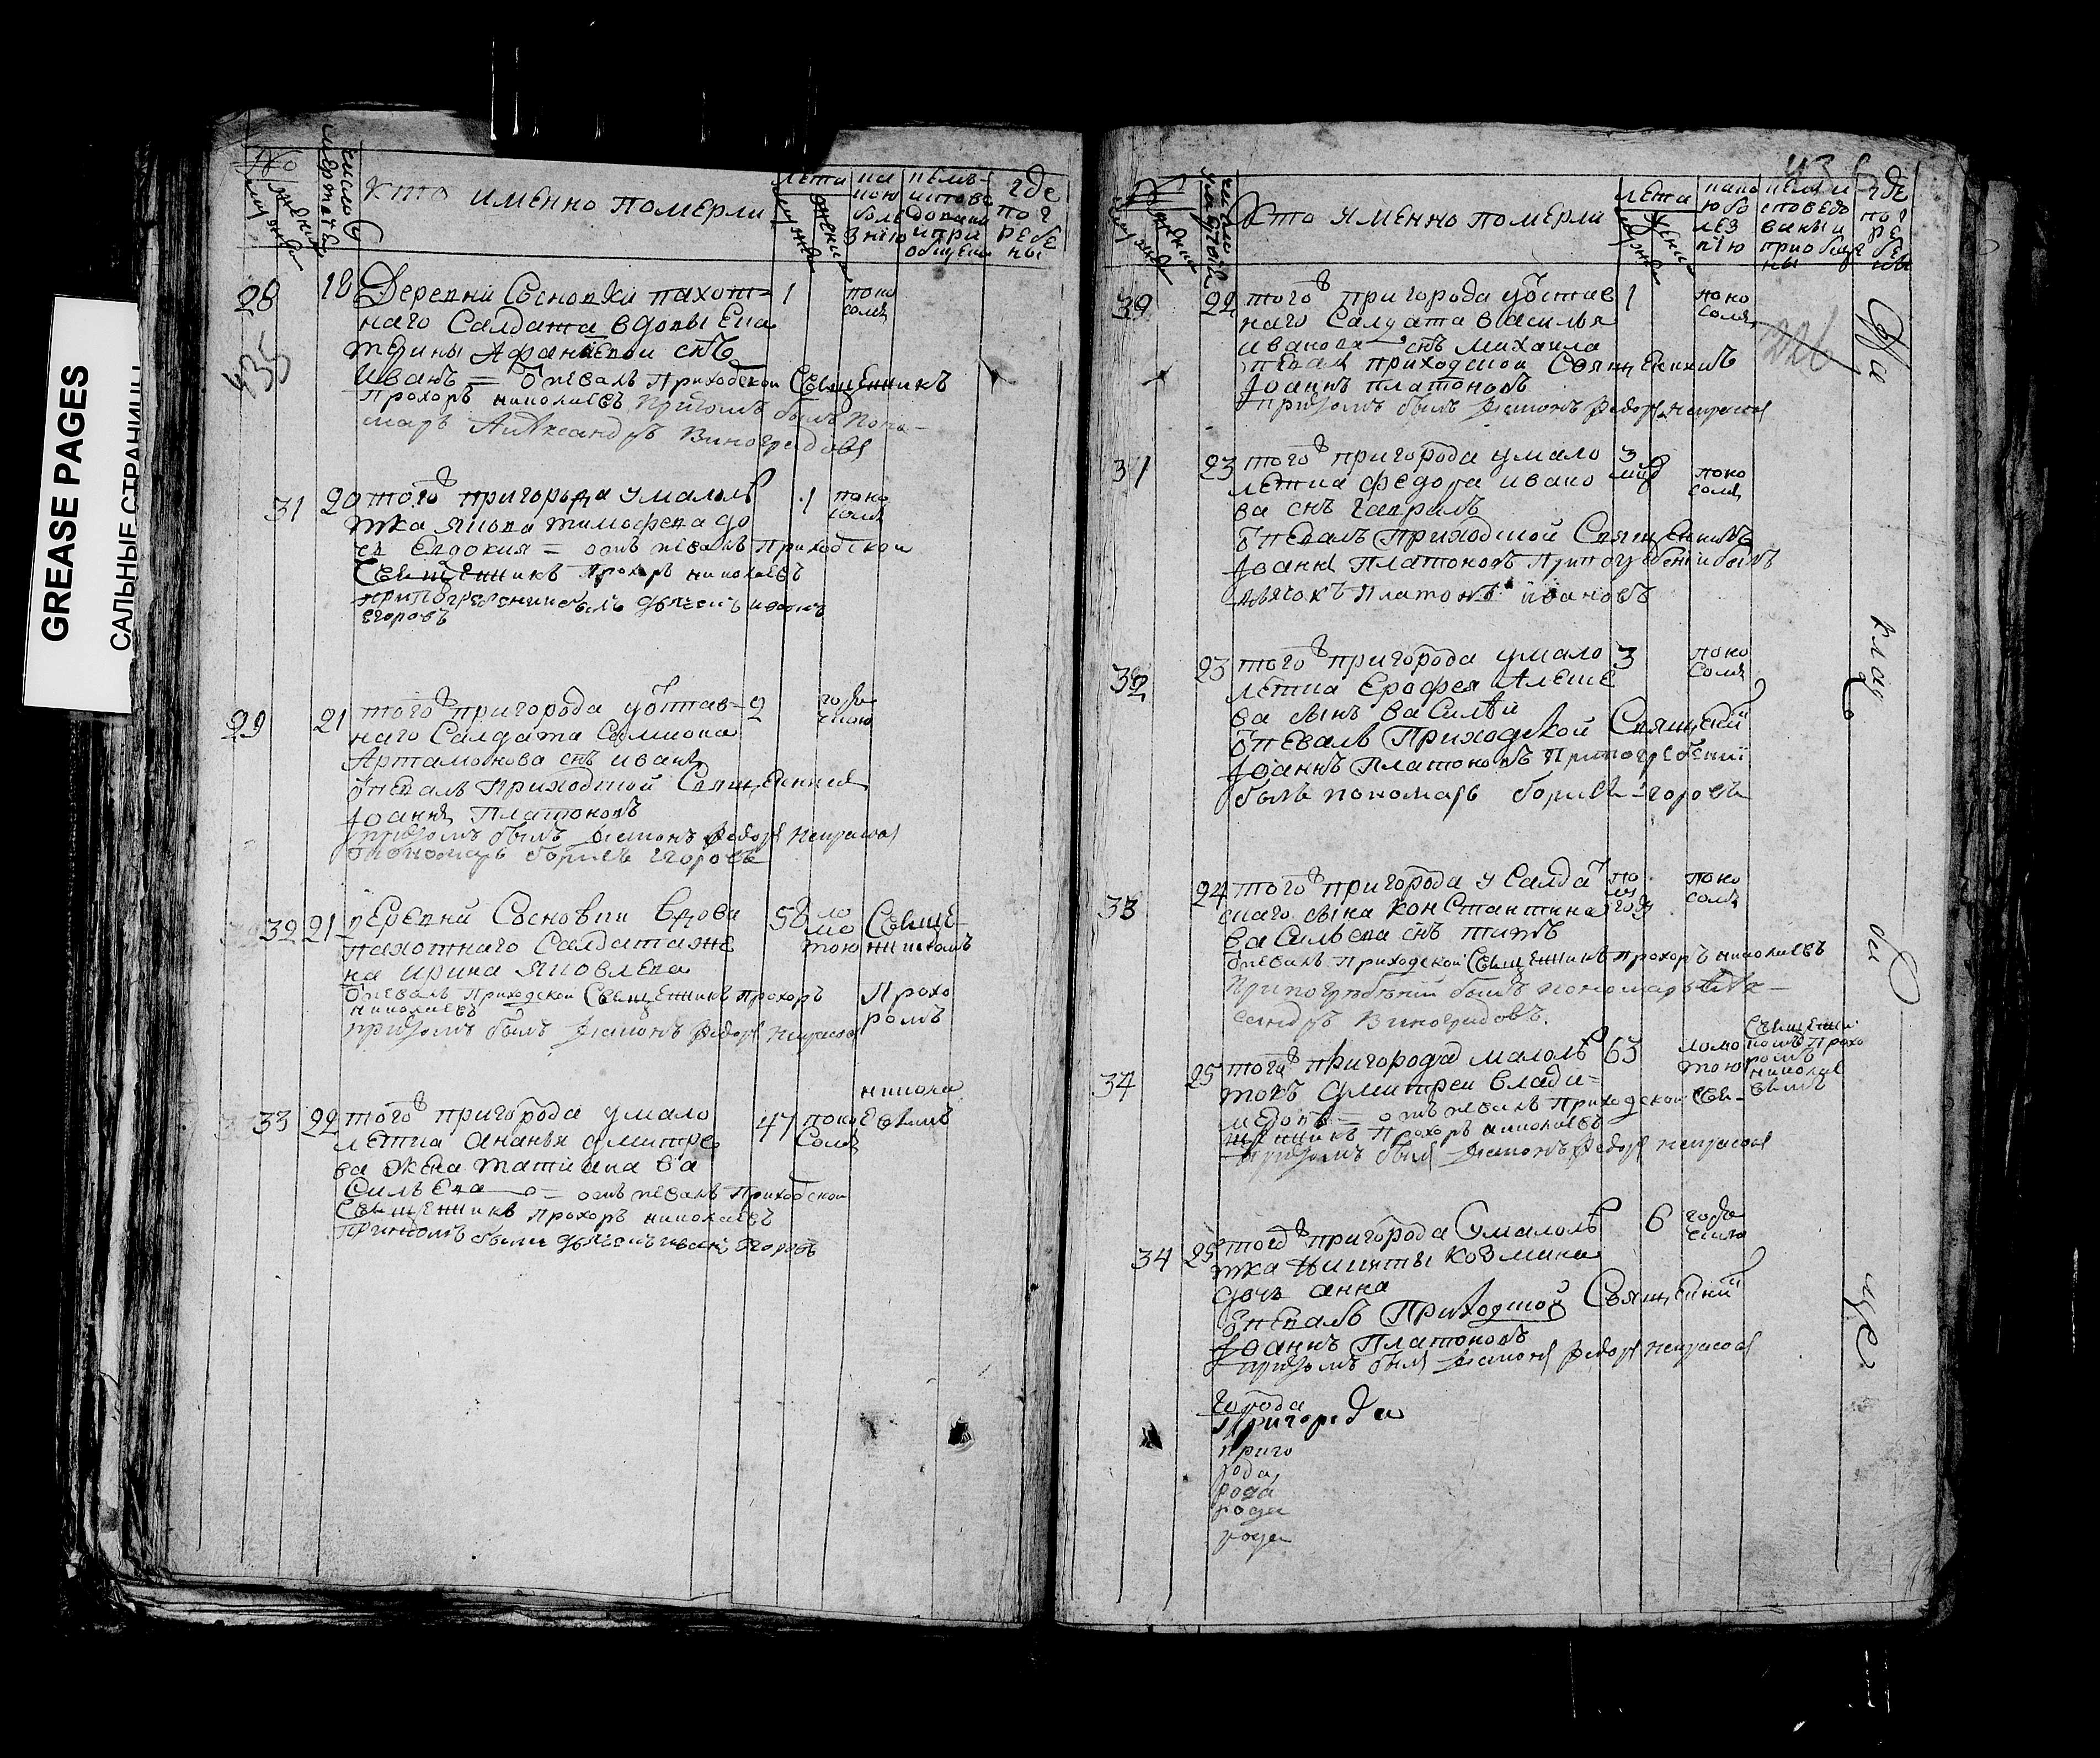 GREASE PAGES
САЛЬНЫЕ СТРАНИЦЫ
№
мужеска
женска
число смертей
кто именно померли
лета
мужеска
женска
кем исповедованы и приобщены
где погребены
28
18
Деревни Сосновки пахот=
наго Салдата вдовы Ека
терины Афанасевои снъ
Иванъ = отпевалъ Приходской Священникъ
Прохоръ николаевъ При томъ былъ Поно-
марь Александръ Виноградовъ
1
поно
сомъ
435
31
20
того пригорода умалолѣ
тка якова тимофеева до
чь Евдокия = отпевалъ Приходской
Священникъ Прохоръ николаевъ
при погребении былъ дьячокъ иванъ
егоровъ
1
поно
сомъ
29
21
того пригорода уотстав-
наго Салдата Семиона
Артамонова снъ иванъ
отпевалъ Приходской Священникъ
Іоаннъ Платоновъ
при томъ былъ диаконъ федоръ некрасовъ
пономарь борисъ егоровъ
2
32
21
деревни Сосновки вдова
пахотнаго Салдата же
на ирина яковлева
отпевалъ Приходской Священникъ Прохоръ
николаевъ
при томъ былъ диаконъ федоръ некрасовъ
58
ло
мо
тою
Свяще
нникомъ
Прохо
ромъ
никола
евымъ
33
22
того пригорода умало
летка ананья дмитрее
ва жена татиана ва
сильева = отпевалъ Приходской
Священникъ Прохоръ николаевъ
при томъ былъ дьячокъ иванъ егоровъ
47
поно
сомъ
кто именно померли
лета
мужеска
женска
какою болезнию
кем исповедованы и приобщены
где погребены
22
того пригорода уотстав
наго Салдата василья
иванова снъ михаила
отпевалъ приходской Священникъ
Іоаннъ платоновъ
при томъ былъ диаконъ федоръ некрасовъ
1
поно
сомъ
На
31
23
того пригорода умало
летка федора ивано
ва снъ гаврилъ
отпевалъ Приходской Священникъ
Іоаннъ Платоновъ При погребении былъ
дьячокъ Платонъ ивановъ
3
поно
сомъ
клад
32
23
того пригорода умало
летка Ерофея Алексе
ва сынъ василей
отпевалъ Приходской Священникъ
Іоаннъ Платоновъ При погребении
былъ пономарь борисъ егоровъ
3
поно
сомъ
33
24
того пригорода у Салда
скаго сына константина
васильева снъ титъ
отпевалъ Приходской Священникъ прохоръ николаевъ
При погребении былъ пономарь Алек-
сандръ Виноградовъ.
по
лу
года
поно
сомъ
би
34
25
того пригорода малолѣ
токъ дмитреи влади=
меровъ = отпевалъ Приходской Свя-
щенникъ Прохоръ николаевъ
при томъ былъ диаконъ федоръ некрасовъ
63
ломо
тою
Священни
комъ Прохо
ромъ
николае
вымъ
34
25
того пригорода умалолѣ
тка никиты козмина
дочь анна
отпевалъ Приходской Священникъ
Іоаннъ Платоновъ
при томъ былъ диаконъ федоръ некрасовъ
6
ще
города
Пригорода
приго
рода
рода
рода
рода